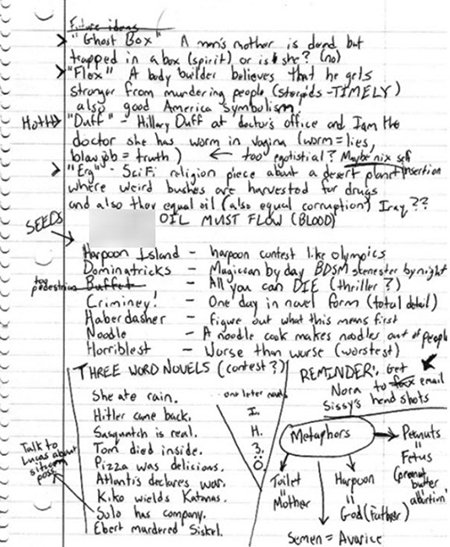 Future ideas
> "Ghost Box" A man's mother is dead but
trapped in a box (spirit) or is she? (no)
> "Flex" A body builder believes that he gets
stronger from murdering people (steroids - TIMELY)
also good America symbolism.
Hottt> "Duff" - Hillary Duff at doctor's office and I am the
doctor she has worm in vagina (worm = lies,
blowjob = truth) ← too egotistial? Maybe nix self insertion
> "Erg" - SciFi religion piece about a desert planet
where weird bushes are harvested for drugs
and also they equal oil (also equal corruption) Iraq??
OIL MUST FLOW (BLOOD)
SEEDS
Harpoon Island - harpoon contest like olympics
Dominatricks - Magician by day BDSM scenester by night
too pedestrian Buffet - All you can DIE (thriller?)
Criminey! - One day in novel form (total detail)
Haberdasher - Figure out what this means first
Noodle - A noodle cook makes noodles out of people
Horriblest - Worse than worse (worstest)
THREE WORD NOVELS (contest?)
She ate rain.
Hitler came back.
Sasquatch is real.
Tom died inside.
Pizza was delicious.
Atlantis declares war.
Kiko wields Katanas.
Solo has company.
Ebert murdered Siskel.
Talk to
Lucas about
sitcom
poss.
one letter novels
I.
H.
3.
Ö.
REMINDER: Get
Nora to email
Sissy's head shots
Metaphors
Toilet
=
Mother
Harpoon
=
God (Father)
Semen = Avarice
Peanuts
=
Fetus
(peanut
butter
abortion)